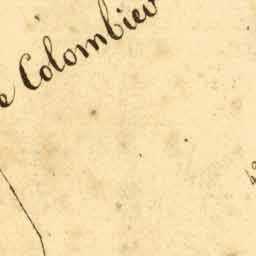 e Colombier